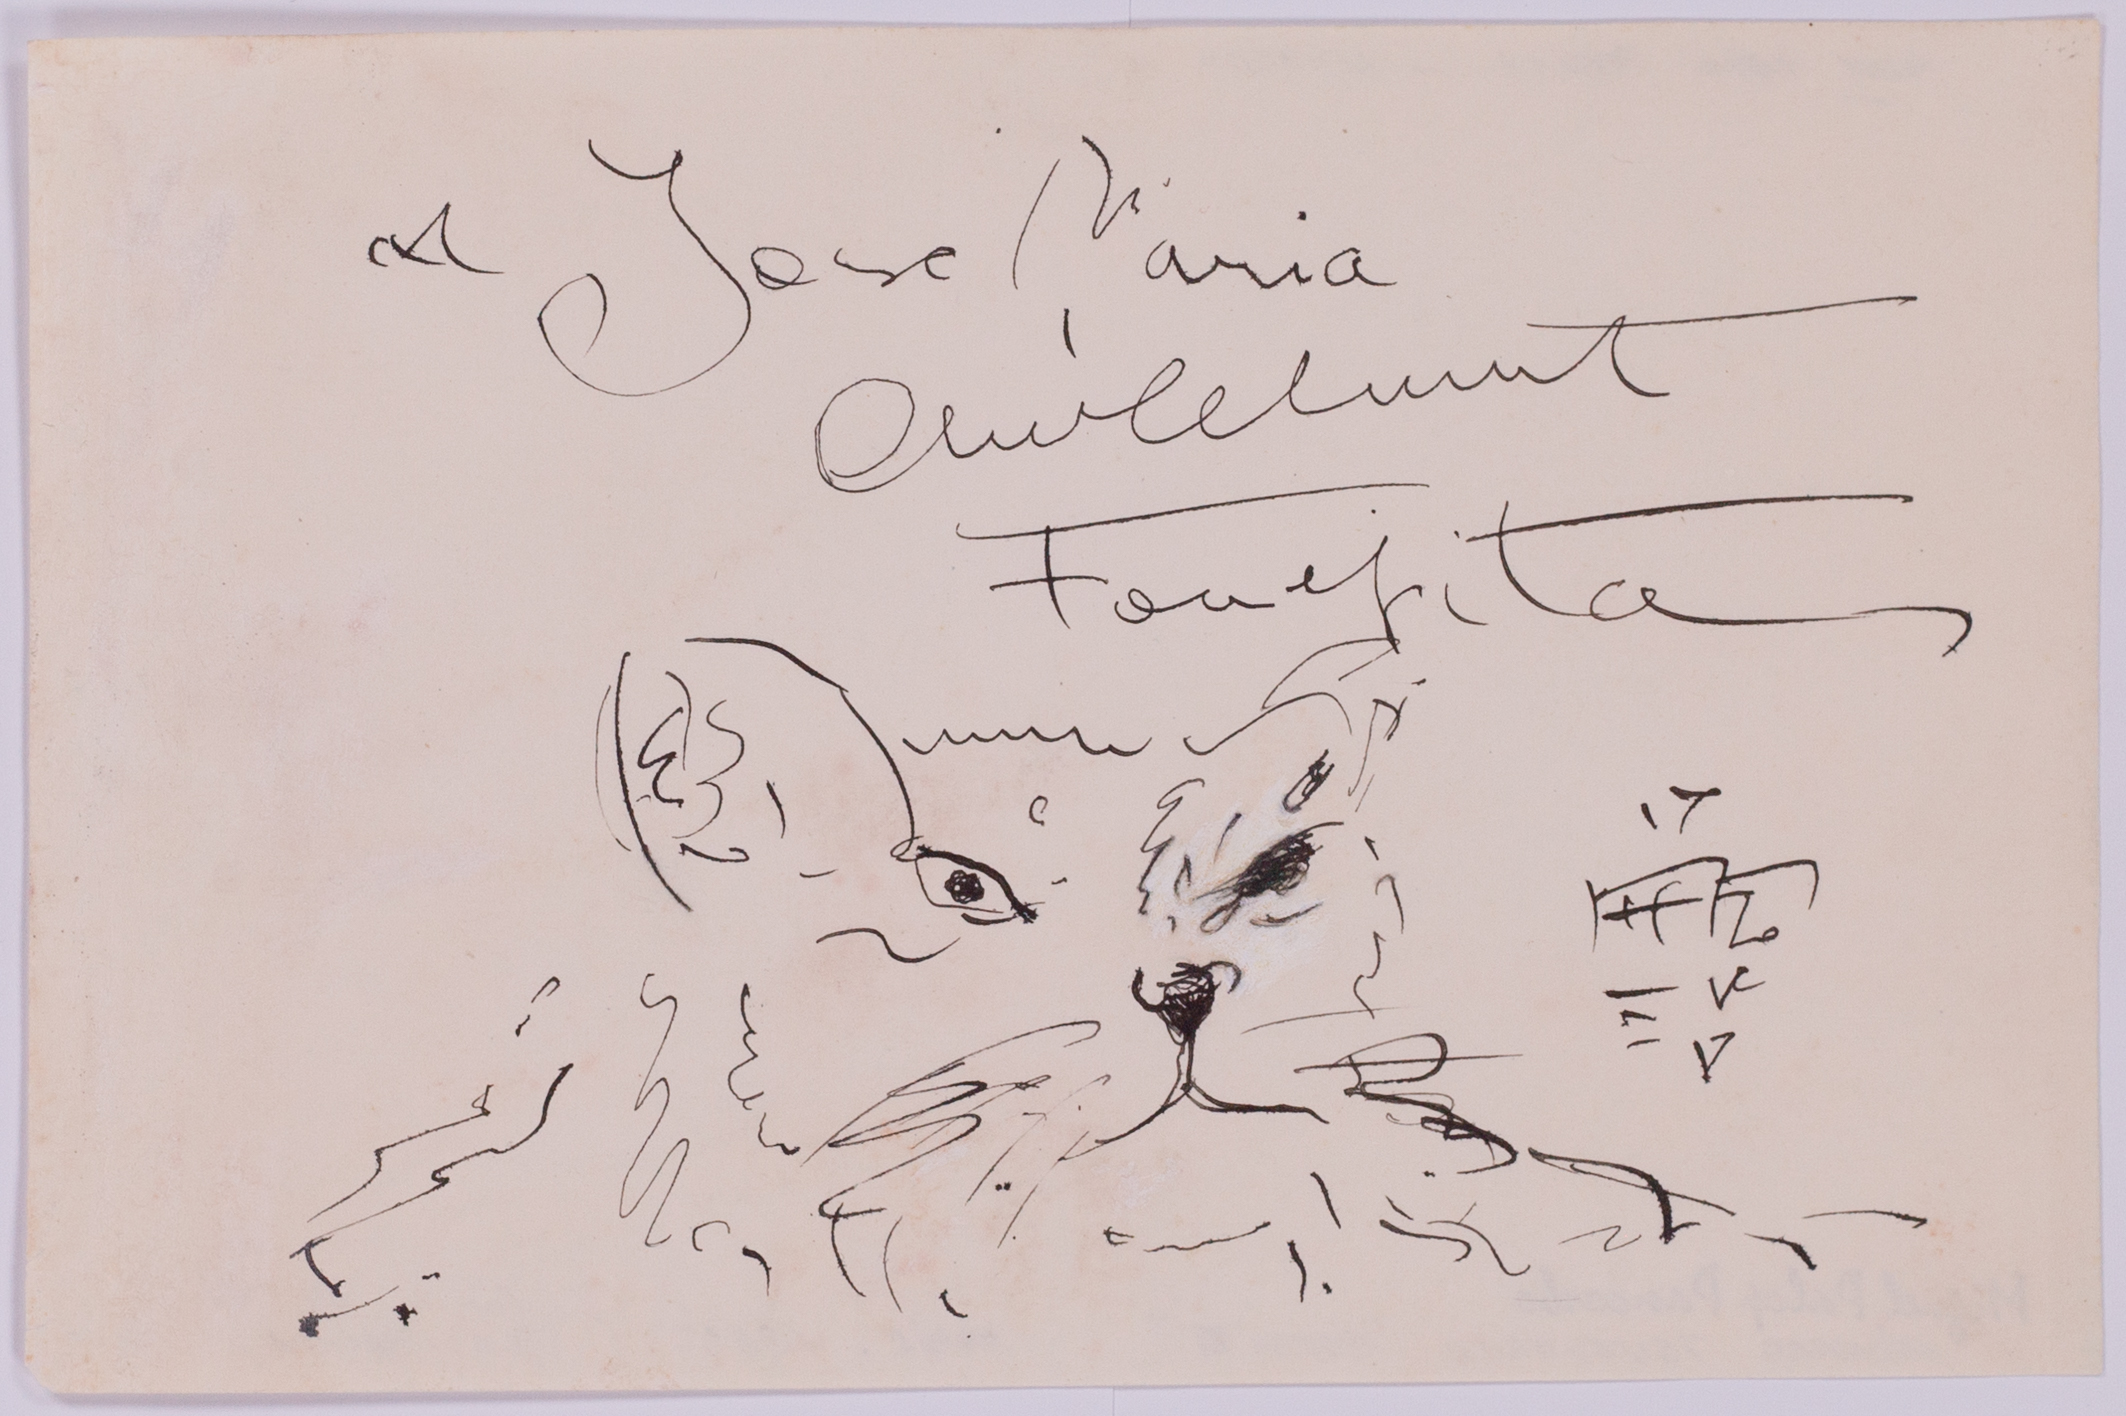 A Jose Maria
Amicalement
Foujita